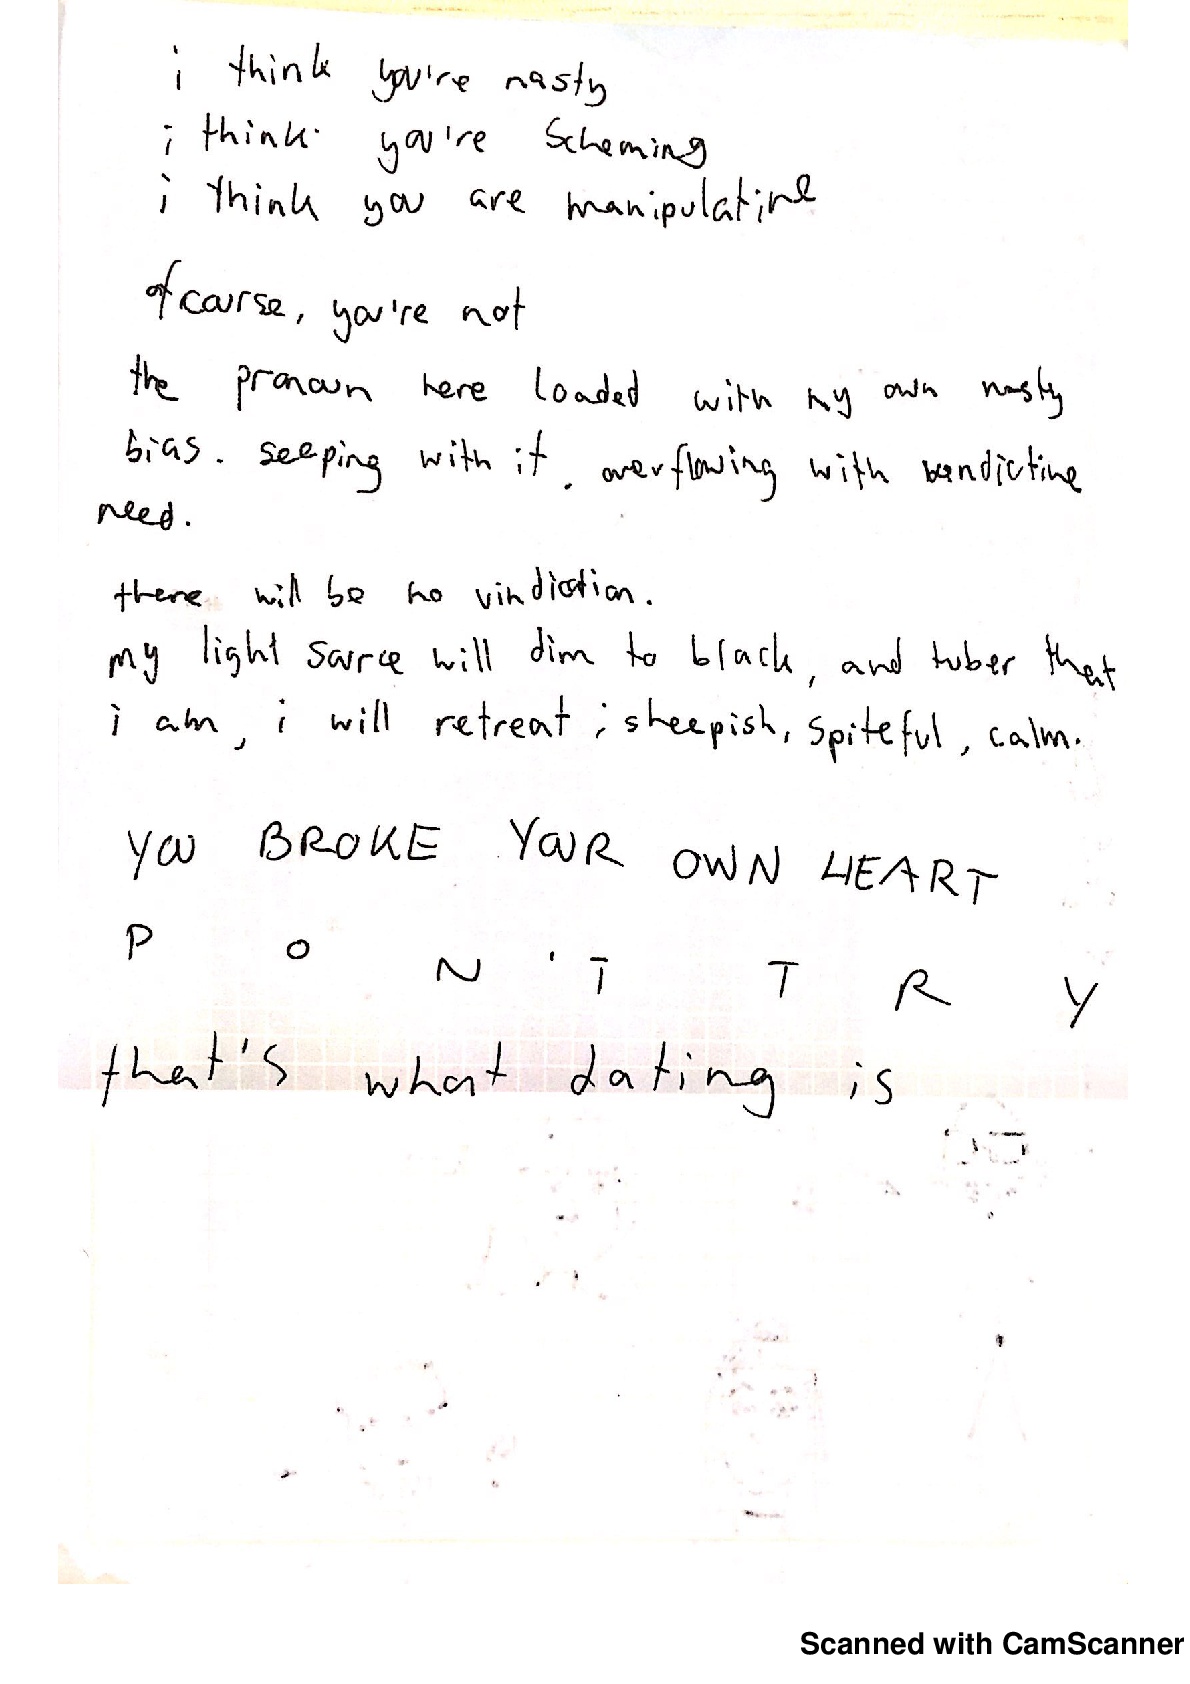 i think you're nasty
i think you're scheming
i think you are manipulative
of course, you're not
the pronoun here loaded with my own nasty
bias. seeping with it. overflowing with vindictive
need.
there will be no vindication.
my light source will dim to black, and tuber that
i am, i will retreat; sheepish, spiteful, calm.
YOU BROKE YOUR OWN HEART
DON'T TRY
that's what dating is
Scanned with CamScanner